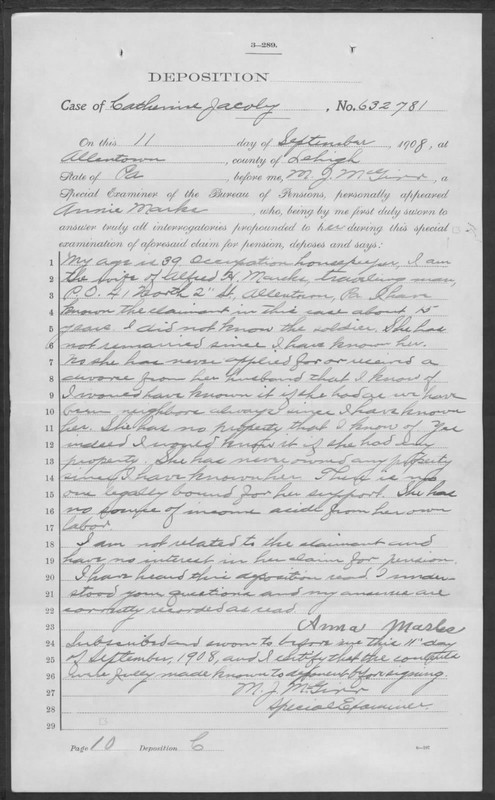 3—289.
DEPOSITION
Case of Catherine Jacoby, No. 632781
On this 11 day of September, 1908, at
Allentown, county of Lehigh
State of Pa, before me, M. J. McGirr, a
Special Examiner of the Bureau of Pensions, personally appeared
Annie Marks, who, being by me first duly sworn to
answer truly all interrogatories propounded to her during this special
examination of aforesaid claim for pension, deposes and says:
1 My age is 39 Occupation housekeeper, I am
2 the wife of Alfred H. Marks, traveling man,
3 P.O. 41 North 2" St, Allentown, Pa. I have
4 known the claimant in this case about 15
5 years. I did not know the soldier. She has
6 not remarried since I have know her.
7 No she has never applied for or receivd a
8 divorce from her husband that I know of
9 I would have known it if she had as we have
10 been neighbors always since I have known
11 her. She has no property that I know of Yes
12 indeed I would know it if she had any
13 property. She has never owned any property
14 since I have known her. There is no
15 one legally bound for her support. She has
16 no source of income aside from her own
17 labor.
18 I am not related to the claimant and
19 have no interest in her claim for pension.
20 I have heard this deposition read I under-
21 stood your questions and my answers are
22 correctly recorded as read.
23 Anna Marks
24 Subscribed and sworn to before me this 11" day
25 of September, 1908, and I certify that the contents
26 were fully made known to deponent before signing.
27 M. J. McGirr
28 Special Examiner.
29
Page 10 Deposition C